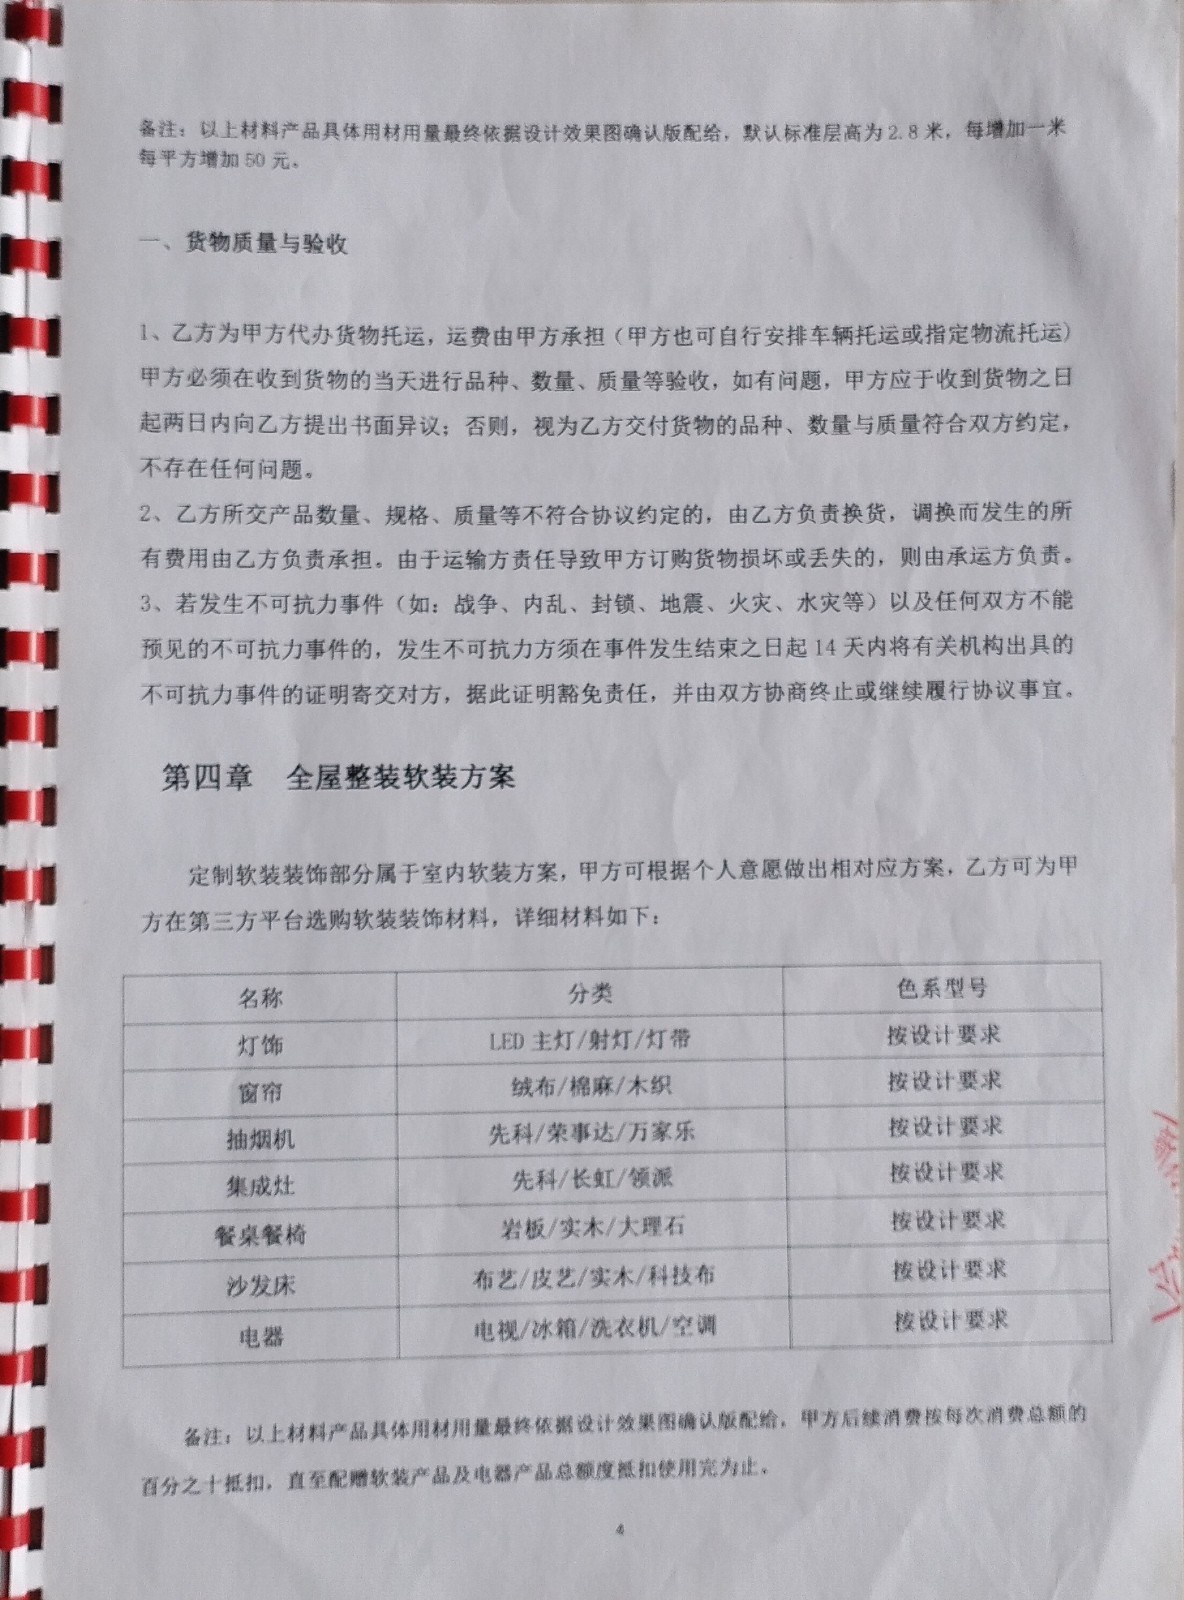 备注：以上材料产品具体用材用量最终依据设计效果图确认版配给，默认标准层高为2.8米，每增加一米
每平方增加50元。
一、货物质量与验收
1、乙方为甲方代办货物托运，运费由甲方承担（甲方也可自行安排车辆托运或指定物流托运）
甲方必须在收到货物的当天进行品种、数量、质量等验收，如有问题，甲方应于收到货物之日
起两日内向乙方提出书面异议；否则，视为乙方交付货物的品种、数量与质量符合双方约定，
不存在任何问题。
2、乙方所交产品数量、规格、质量等不符合协议约定的，由乙方负责换货，调换而发生的所
有费用由乙方负责承担。由于运输方责任导致甲方订购货物损坏或丢失的，则由承运方负责。
3、若发生不可抗力事件（如：战争、内乱、封锁、地震、火灾、水灾等）以及任何双方不能
预见的不可抗力事件的，发生不可抗力方须在事件发生结束之日起14天内将有关机构出具的
不可抗力事件的证明寄交对方，据此证明豁免责任，并由双方协商终止或继续履行协议事宜。
第四章 全屋整装软装方案
定制软装装饰部分属于室内软装方案，甲方可根据个人意愿做出相对应方案，乙方可为甲
方在第三方平台选购软装装饰材料，详细材料如下：
名称 分类 色系型号
灯饰 LED主灯/射灯/灯带 按设计要求
窗帘 绒布/棉麻/木织 按设计要求
抽烟机 先科/荣事达/万家乐 按设计要求
集成灶 先科/长虹/领派 按设计要求
餐桌餐椅 岩板/实木/大理石 按设计要求
沙发床 布艺/皮艺/实木/科技布 按设计要求
电器 电视/冰箱/洗衣机/空调 按设计要求
备注：以上材料产品具体用材用量最终依据设计效果图确认版配给，甲方后续消费按每次消费总额的
百分之十抵扣，直至配赠软装产品及电器产品总额度抵扣使用完为止。
4